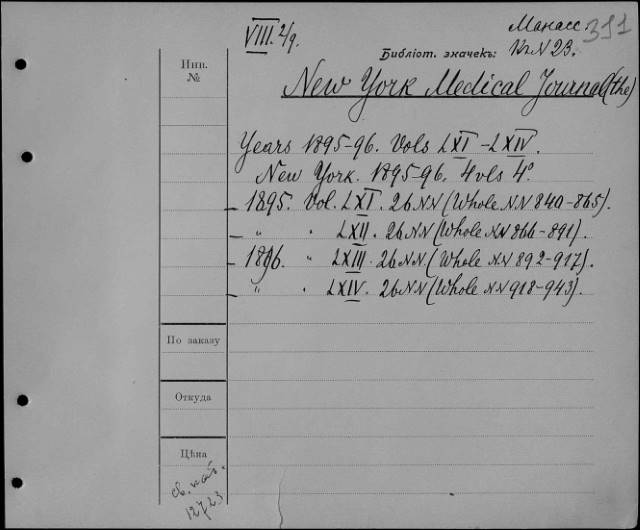 VIII. 2/9.
Манасс. 311
Библіот. значекъ: Кк N 23.
Инв.
№
New York Medical Journal (the)
Years 1895-96. Vols LXI-LXIV.
New York. 1895-96. 4 vols 4°
1895. Vol. LXI. 26 NN (Whole NN 840-865).
„ „ LXII. 26 NN (Whole NN 866-891).
1896. „ LXIII. 26 NN (Whole NN 892-917).
„ „ LXIV. 26 NN (Whole NN 918-943).
По заказу
Откуда
Цѣна
12723